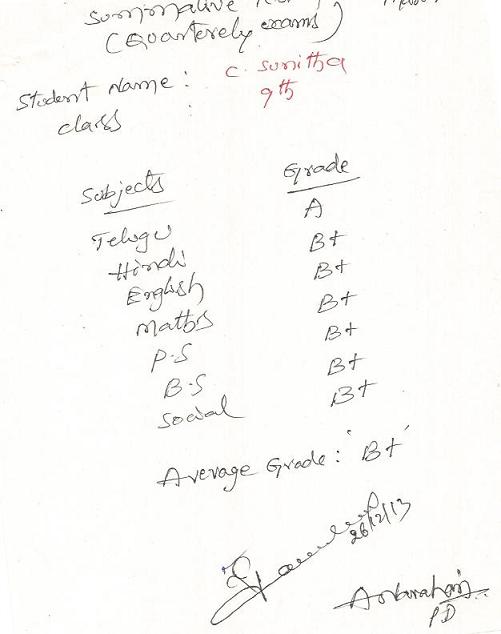 Summative
(Quarterely exams)
Student Name : C. Sunitha
class : 9th
Subjects Grade
Telugu A
Hindi B+
English B+
Maths B+
P.S B+
B.S B+
Social B+
Average Grade : 'B+'
26/12/13
PD